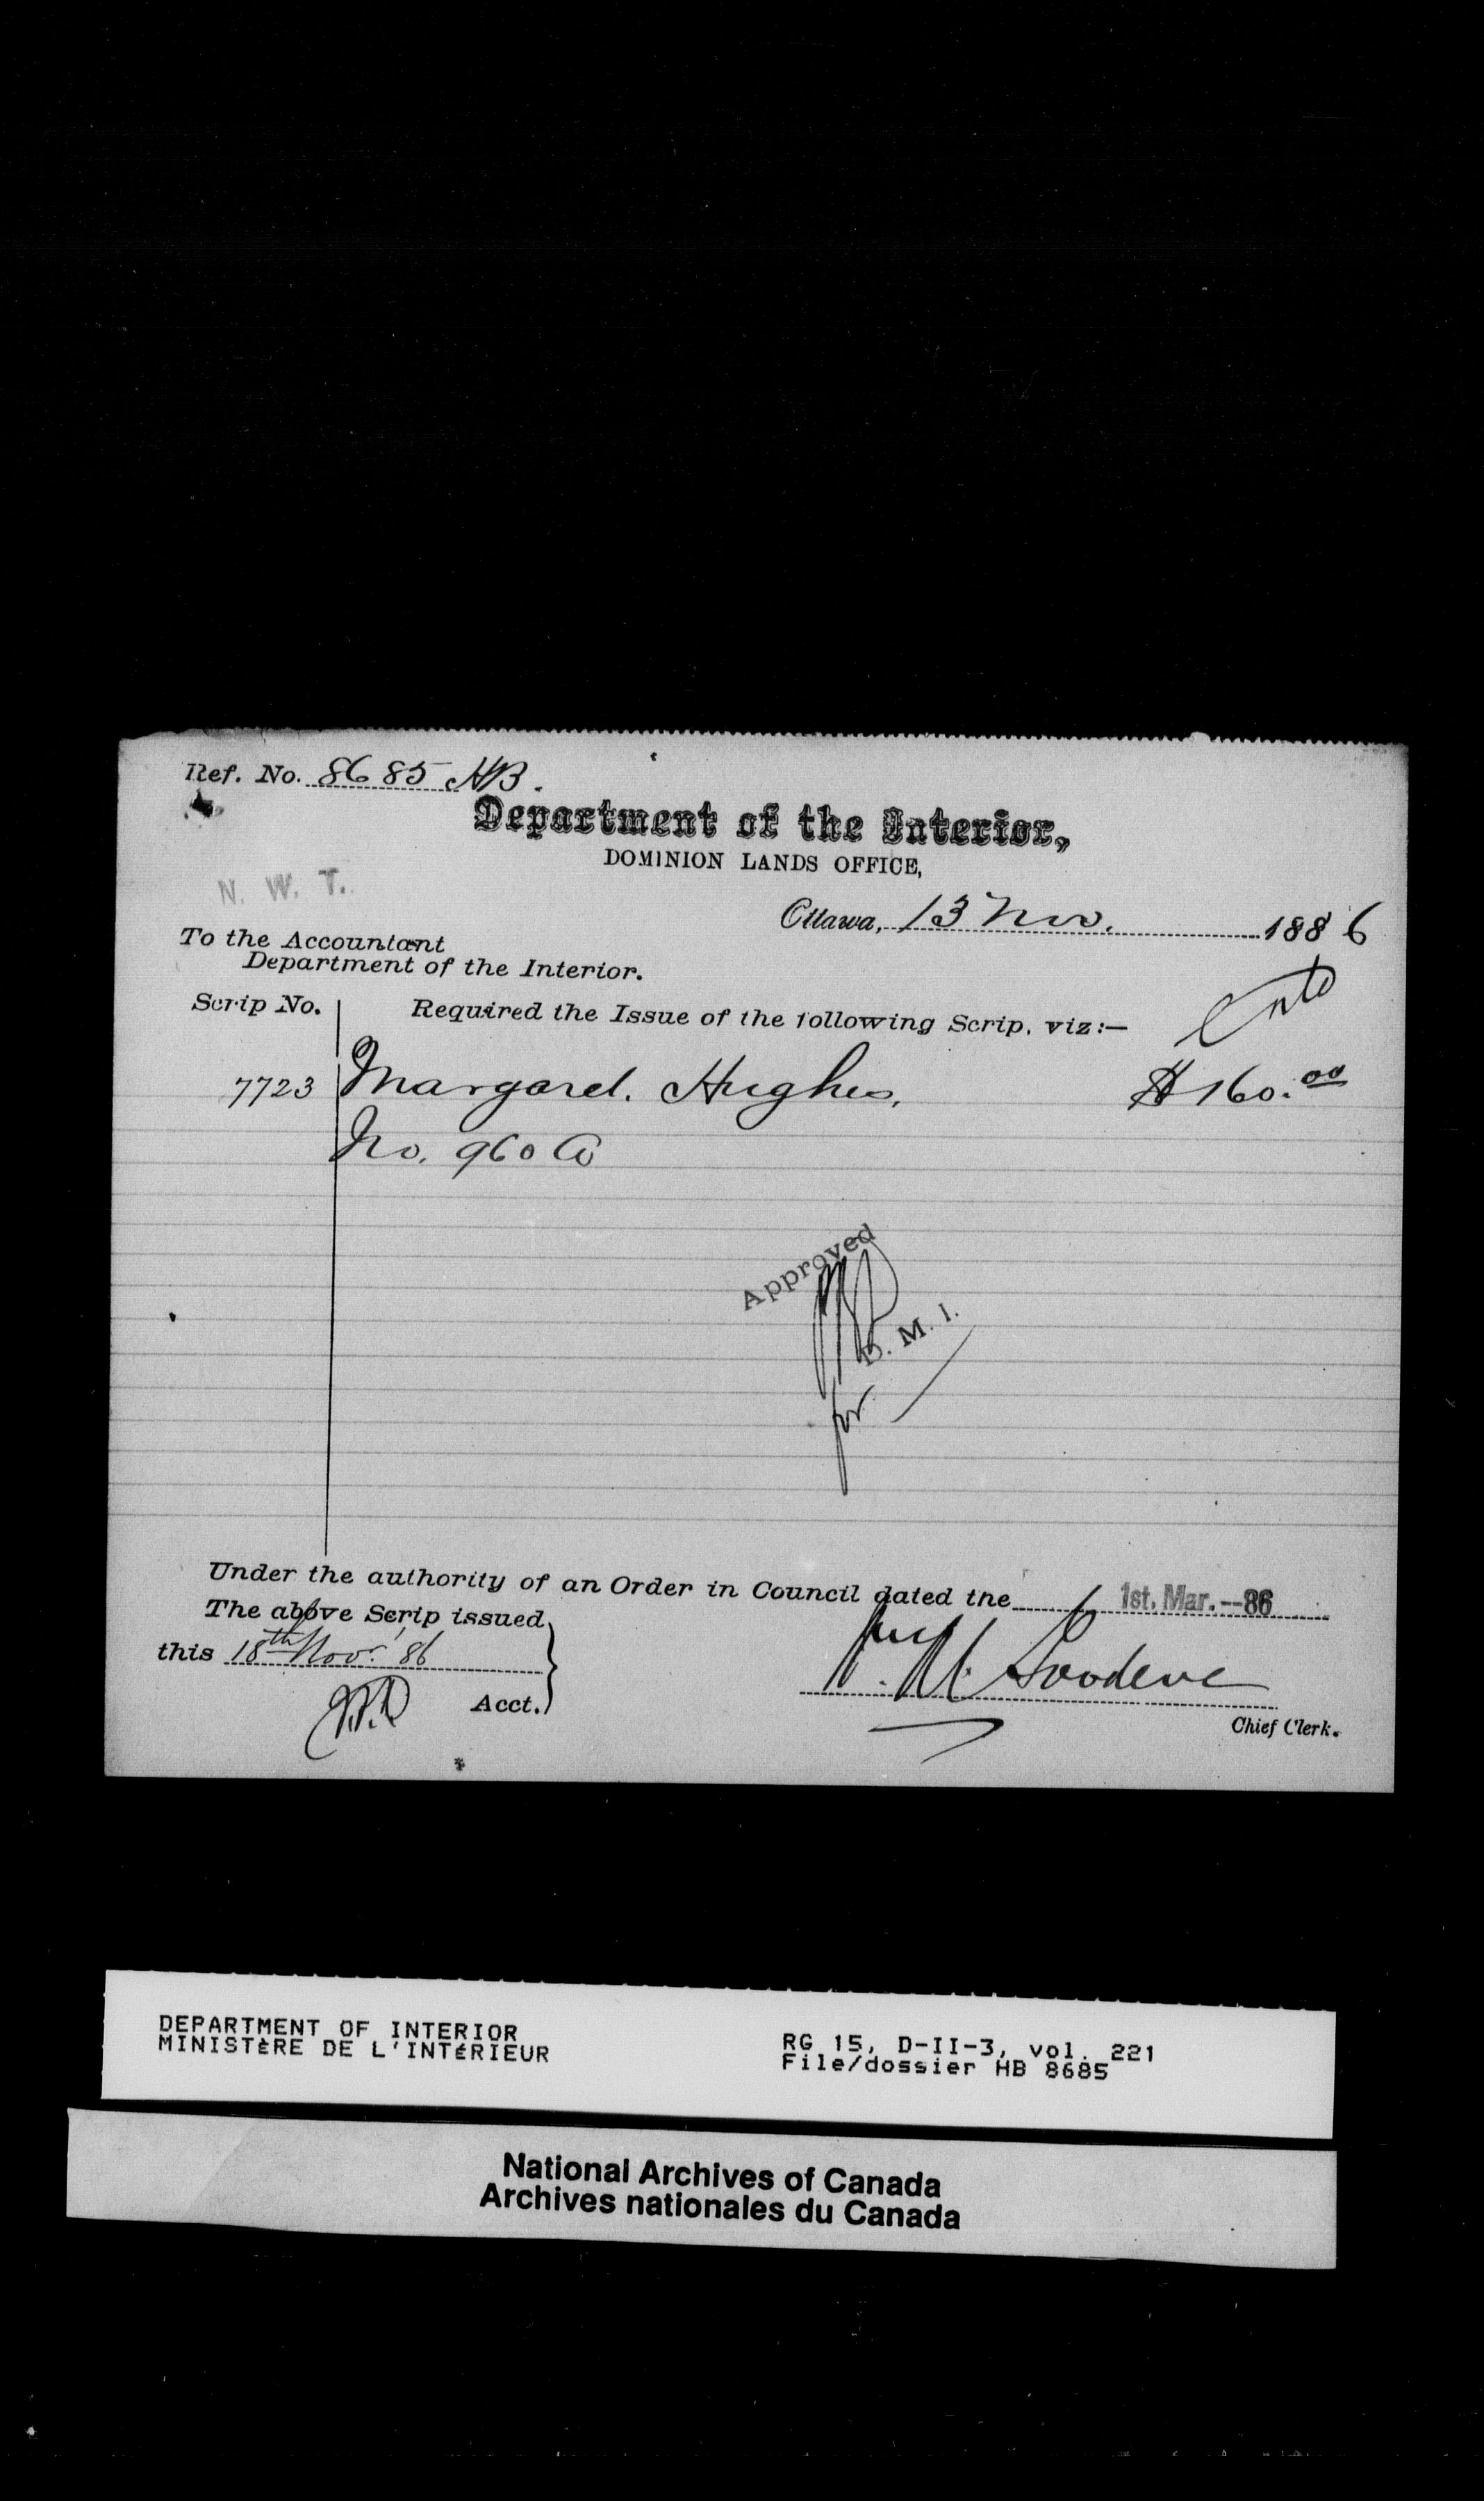 Ref. No. 8685 HB.
Department of the Interior,
DOMINION LANDS OFFICE,
N. W. T.
Ottawa, 13 Nov. 1886
To the Accountant
Department of the Interior.
Scrip No. Required the Issue of the following Scrip, viz:—
7723 Margaret. Hughes, $160.00
No. 960
Approved
D. M. I.
for
Under the authority of an Order in Council dated the 1st. Mar.--86
The above Scrip issued
this 18th Nov. '86
Acct.
Goodeve
Chief Clerk.
DEPARTMENT OF INTERIOR
MINISTÈRE DE L'INTÉRIEUR
RG 15, D-II-3, vol. 221
File/dossier HB 8685
National Archives of Canada
Archives nationales du Canada